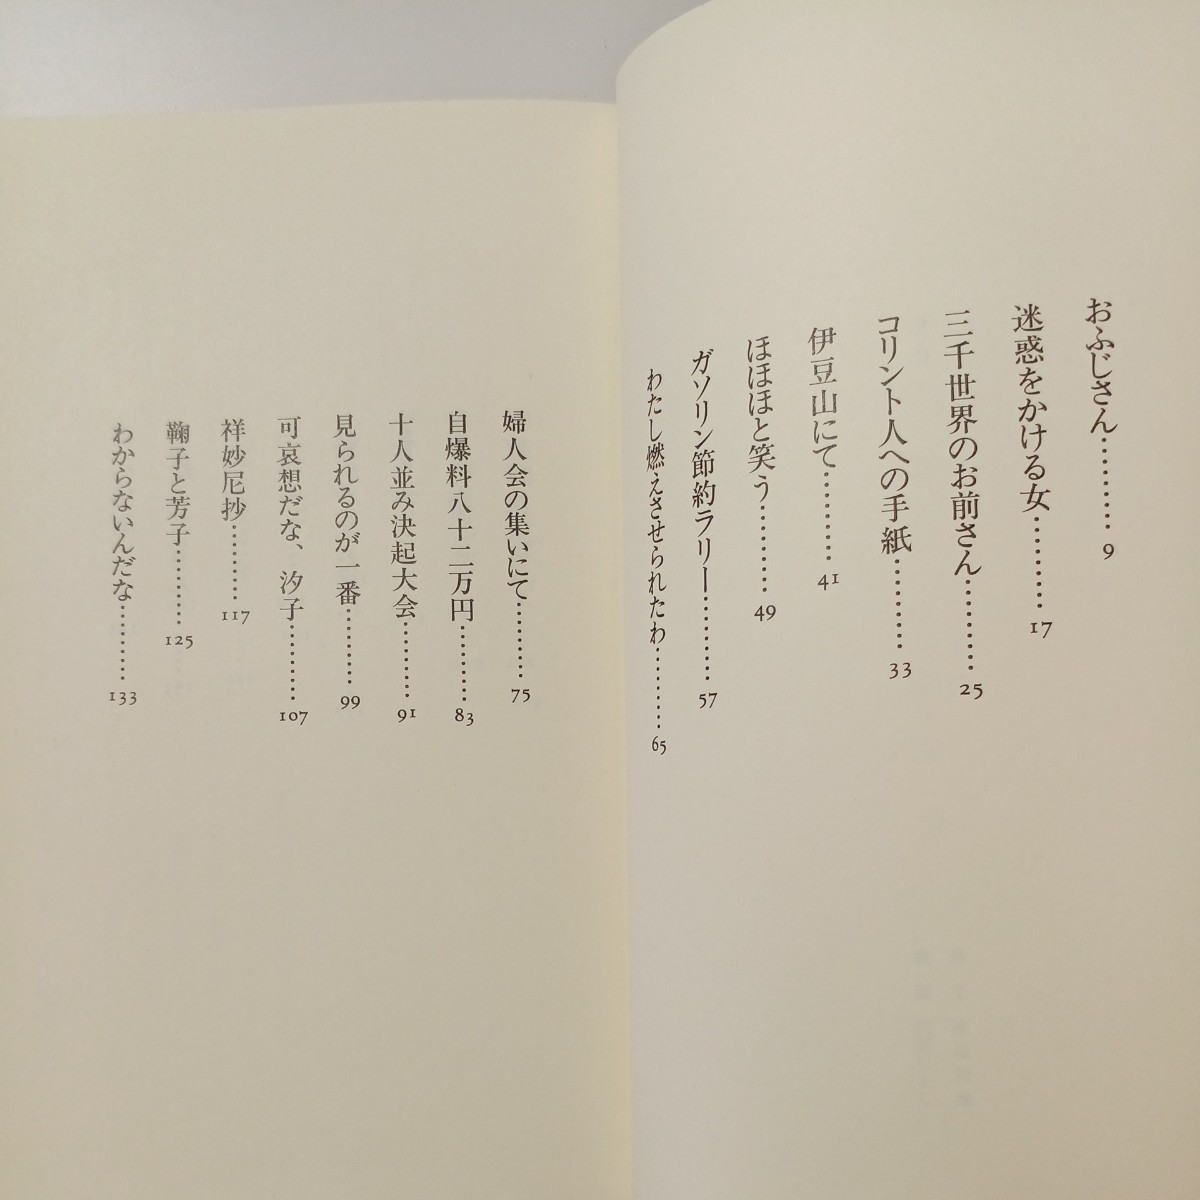 おふじさん………9
迷惑をかける女………17
三千世界のお前さん………25
コリント人への手紙………33
伊豆山にて………41
ほほほと笑う………49
ガソリン節約ラリー………57
わたし燃えさせられたわ………65
婦人会の集いにて………75
自爆料八十二万円………83
十人並み決起大会………91
見られるのが一番………99
可哀想だな、汐子………107
祥妙尼抄………117
鞠子と芳子………125
わからないんだな………133